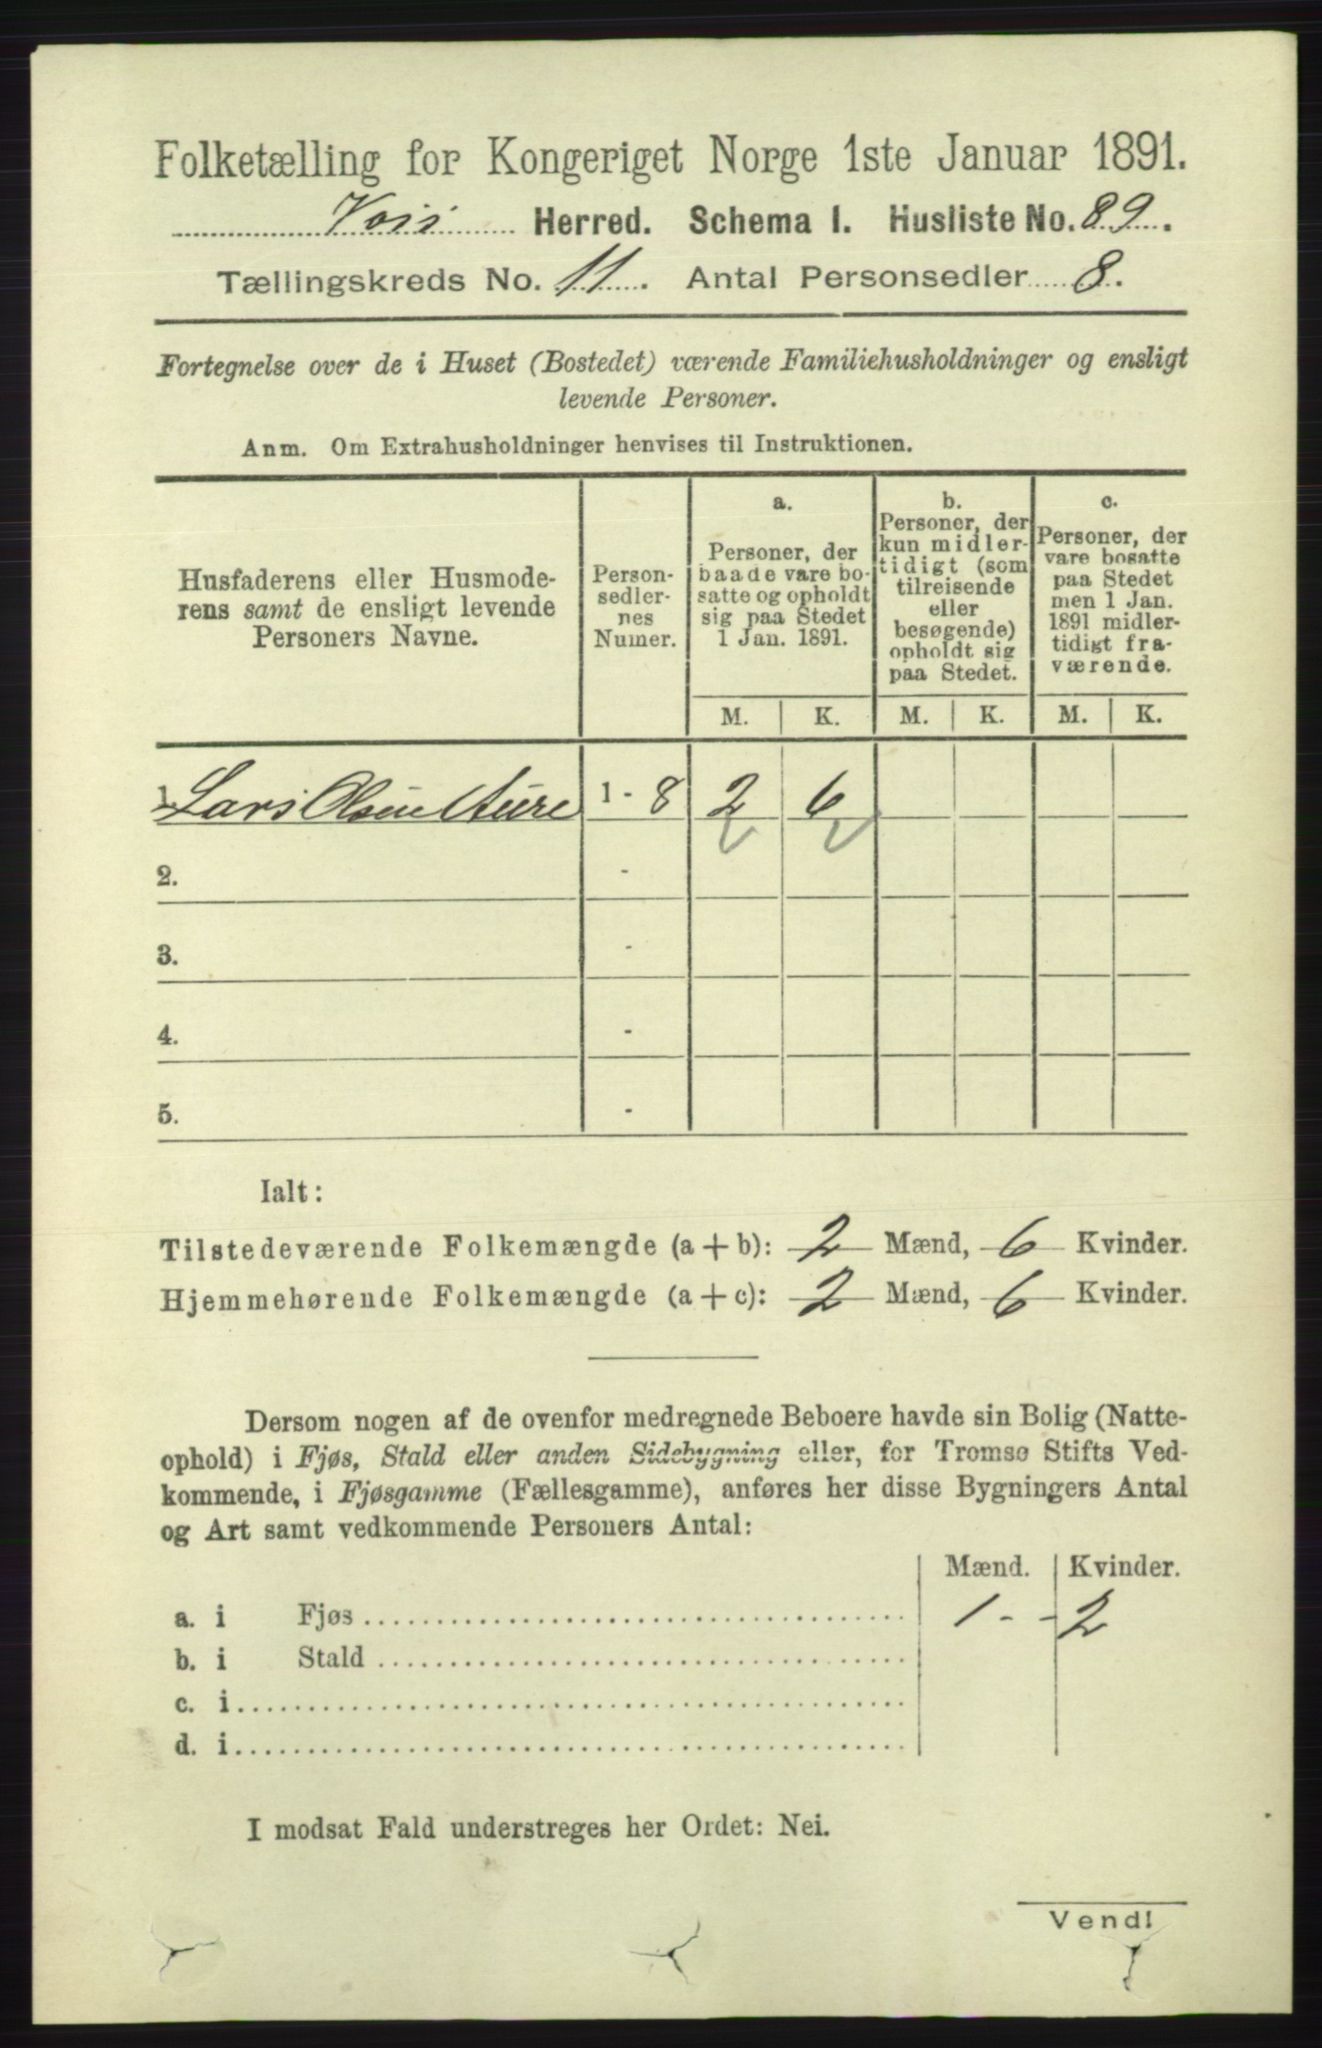 Folketælling for Kongeriget Norge 1ste Januar 1891.
Voss Herred. Schema I. Husliste No. 89.
Tællingskreds No. 11. Antal Personsedler 8.
Fortegnelse over de i Huset (Bostedet) værende Familiehusholdninger og ensligt
levende Personer.
Anm. Om Extrahusholdninger henvises til Instruktionen.
Husfaderens eller Husmode-
rens samt de ensligt levende
Personers Navne.
Person-
sedler-
nes
Numer.
a.
Personer, der
baade vare bo-
satte og opholdt
sig paa Stedet
1 Jan. 1891.
b.
Personer, der
kun midler-
tidigt (som
tilreisende
eller
besøgende)
opholdt sig
paa Stedet.
c.
Personer, der
vare bosatte
paa Stedet
men 1 Jan.
1891 midler-
tidigt fra-
værende.
M. K. M. K. M. K.
1. Lars Olsen Aure 1 - 8 2 6
2. -
3. -
4. -
5. -
Ialt:
Tilstedeværende Folkemængde (a + b): 2 Mænd, 6 Kvinder.
Hjemmehørende Folkemængde (a + c): 2 Mænd, 6 Kvinder.
Dersom nogen af de ovenfor medregnede Beboere havde sin Bolig (Natte-
ophold) i Fjøs, Stald eller anden Sidebygning eller, for Tromsø Stifts Ved-
kommende, i Fjøsgamme (Fællesgamme), anføres her disse Bygningers Antal
og Art samt vedkommende Personers Antal:
Mænd. Kvinder.
a. i Fjøs 1 - - 2
b. i Stald
c. i
d. i
I modsat Fald understreges her Ordet: Nei.
Vend!